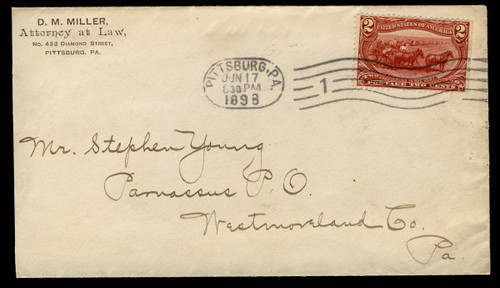 D. M. MILLER,
Attorney at Law,
No. 432 DIAMOND STREET,
PITTSBURG, PA.
PITTSBURG, PA.
JUN 17
630 PM
1898
1
2 2
UNITED STATES OF AMERICA
POSTAGE TWO CENTS
Mr. Stephen Young
Parnassus P. O.
Westmoreland Co.
Pa.